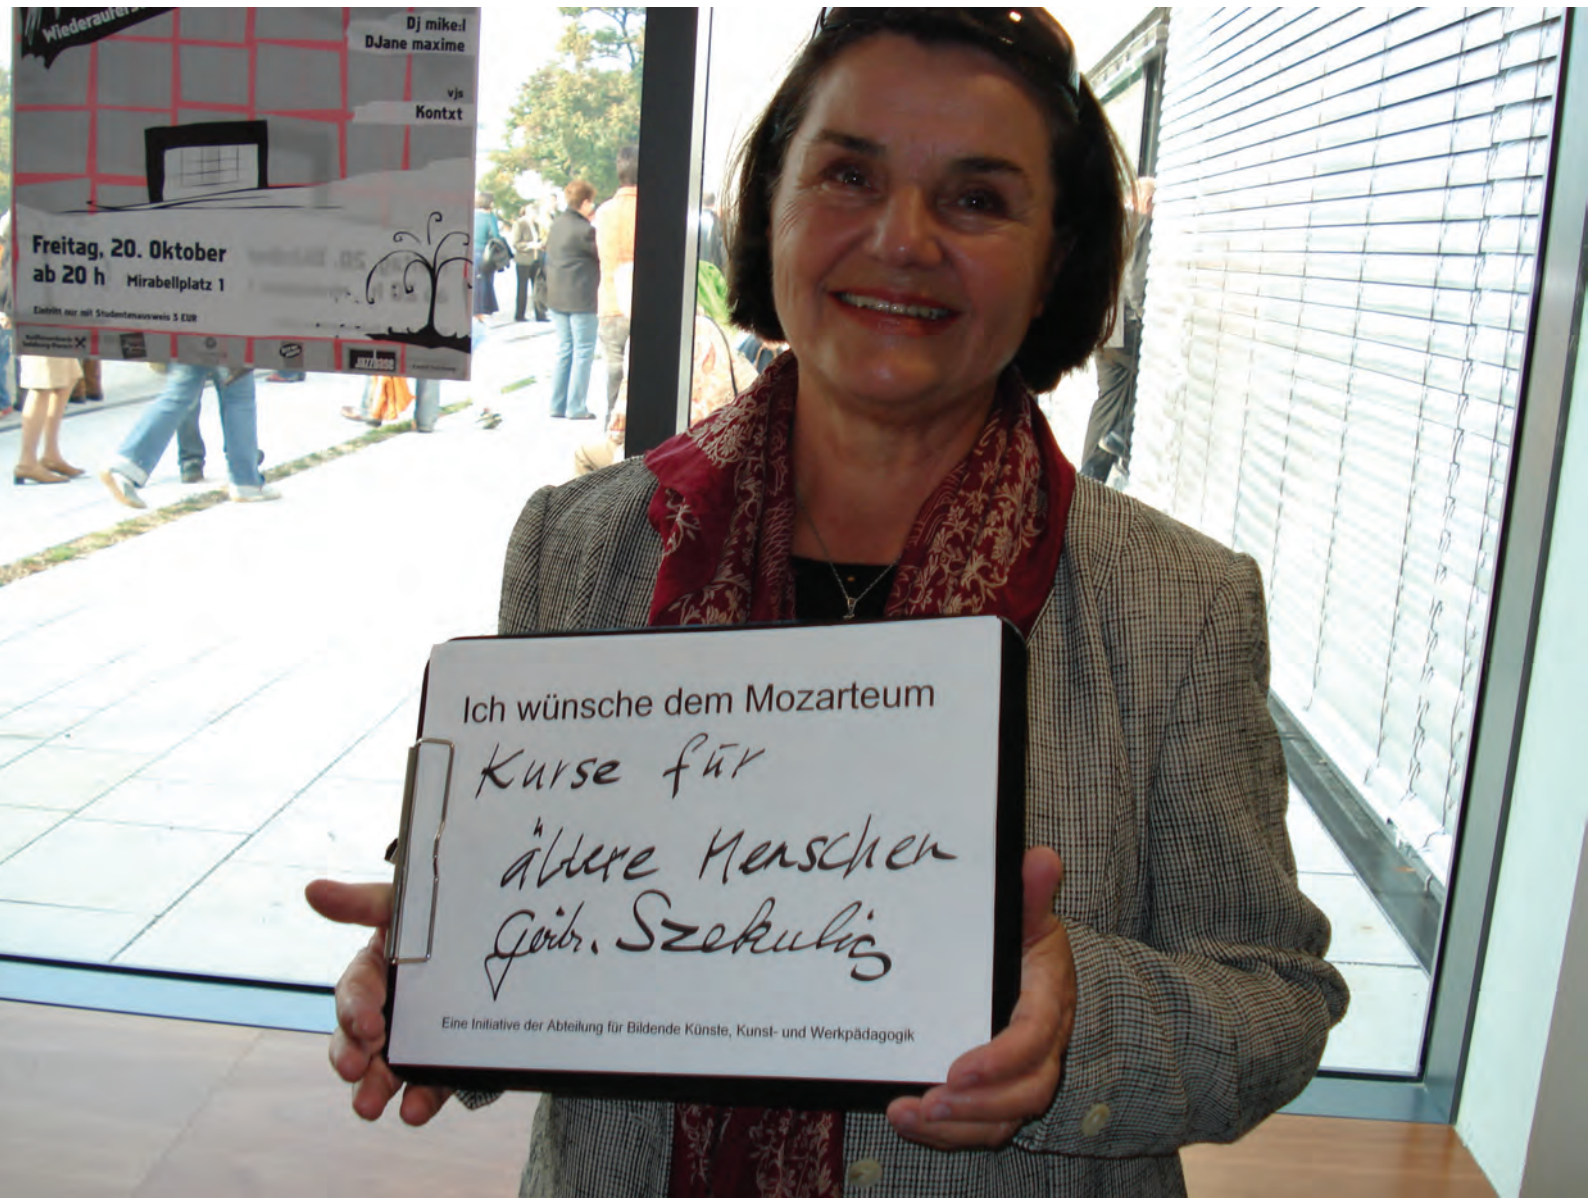 Dj mike:l
DJane maxime
vjs
Kontxt
Freitag, 20. Oktober
ab 20 h Mirabellplatz 1
Eintritt nur mit Studentenausweis 5 EUR
JAZZBOSE
Ich wünsche dem Mozarteum
Kurse für
ältere Menschen
Szekulig
Eine Initiative der Abteilung für Bildende Künste, Kunst- und Werkpädagogik